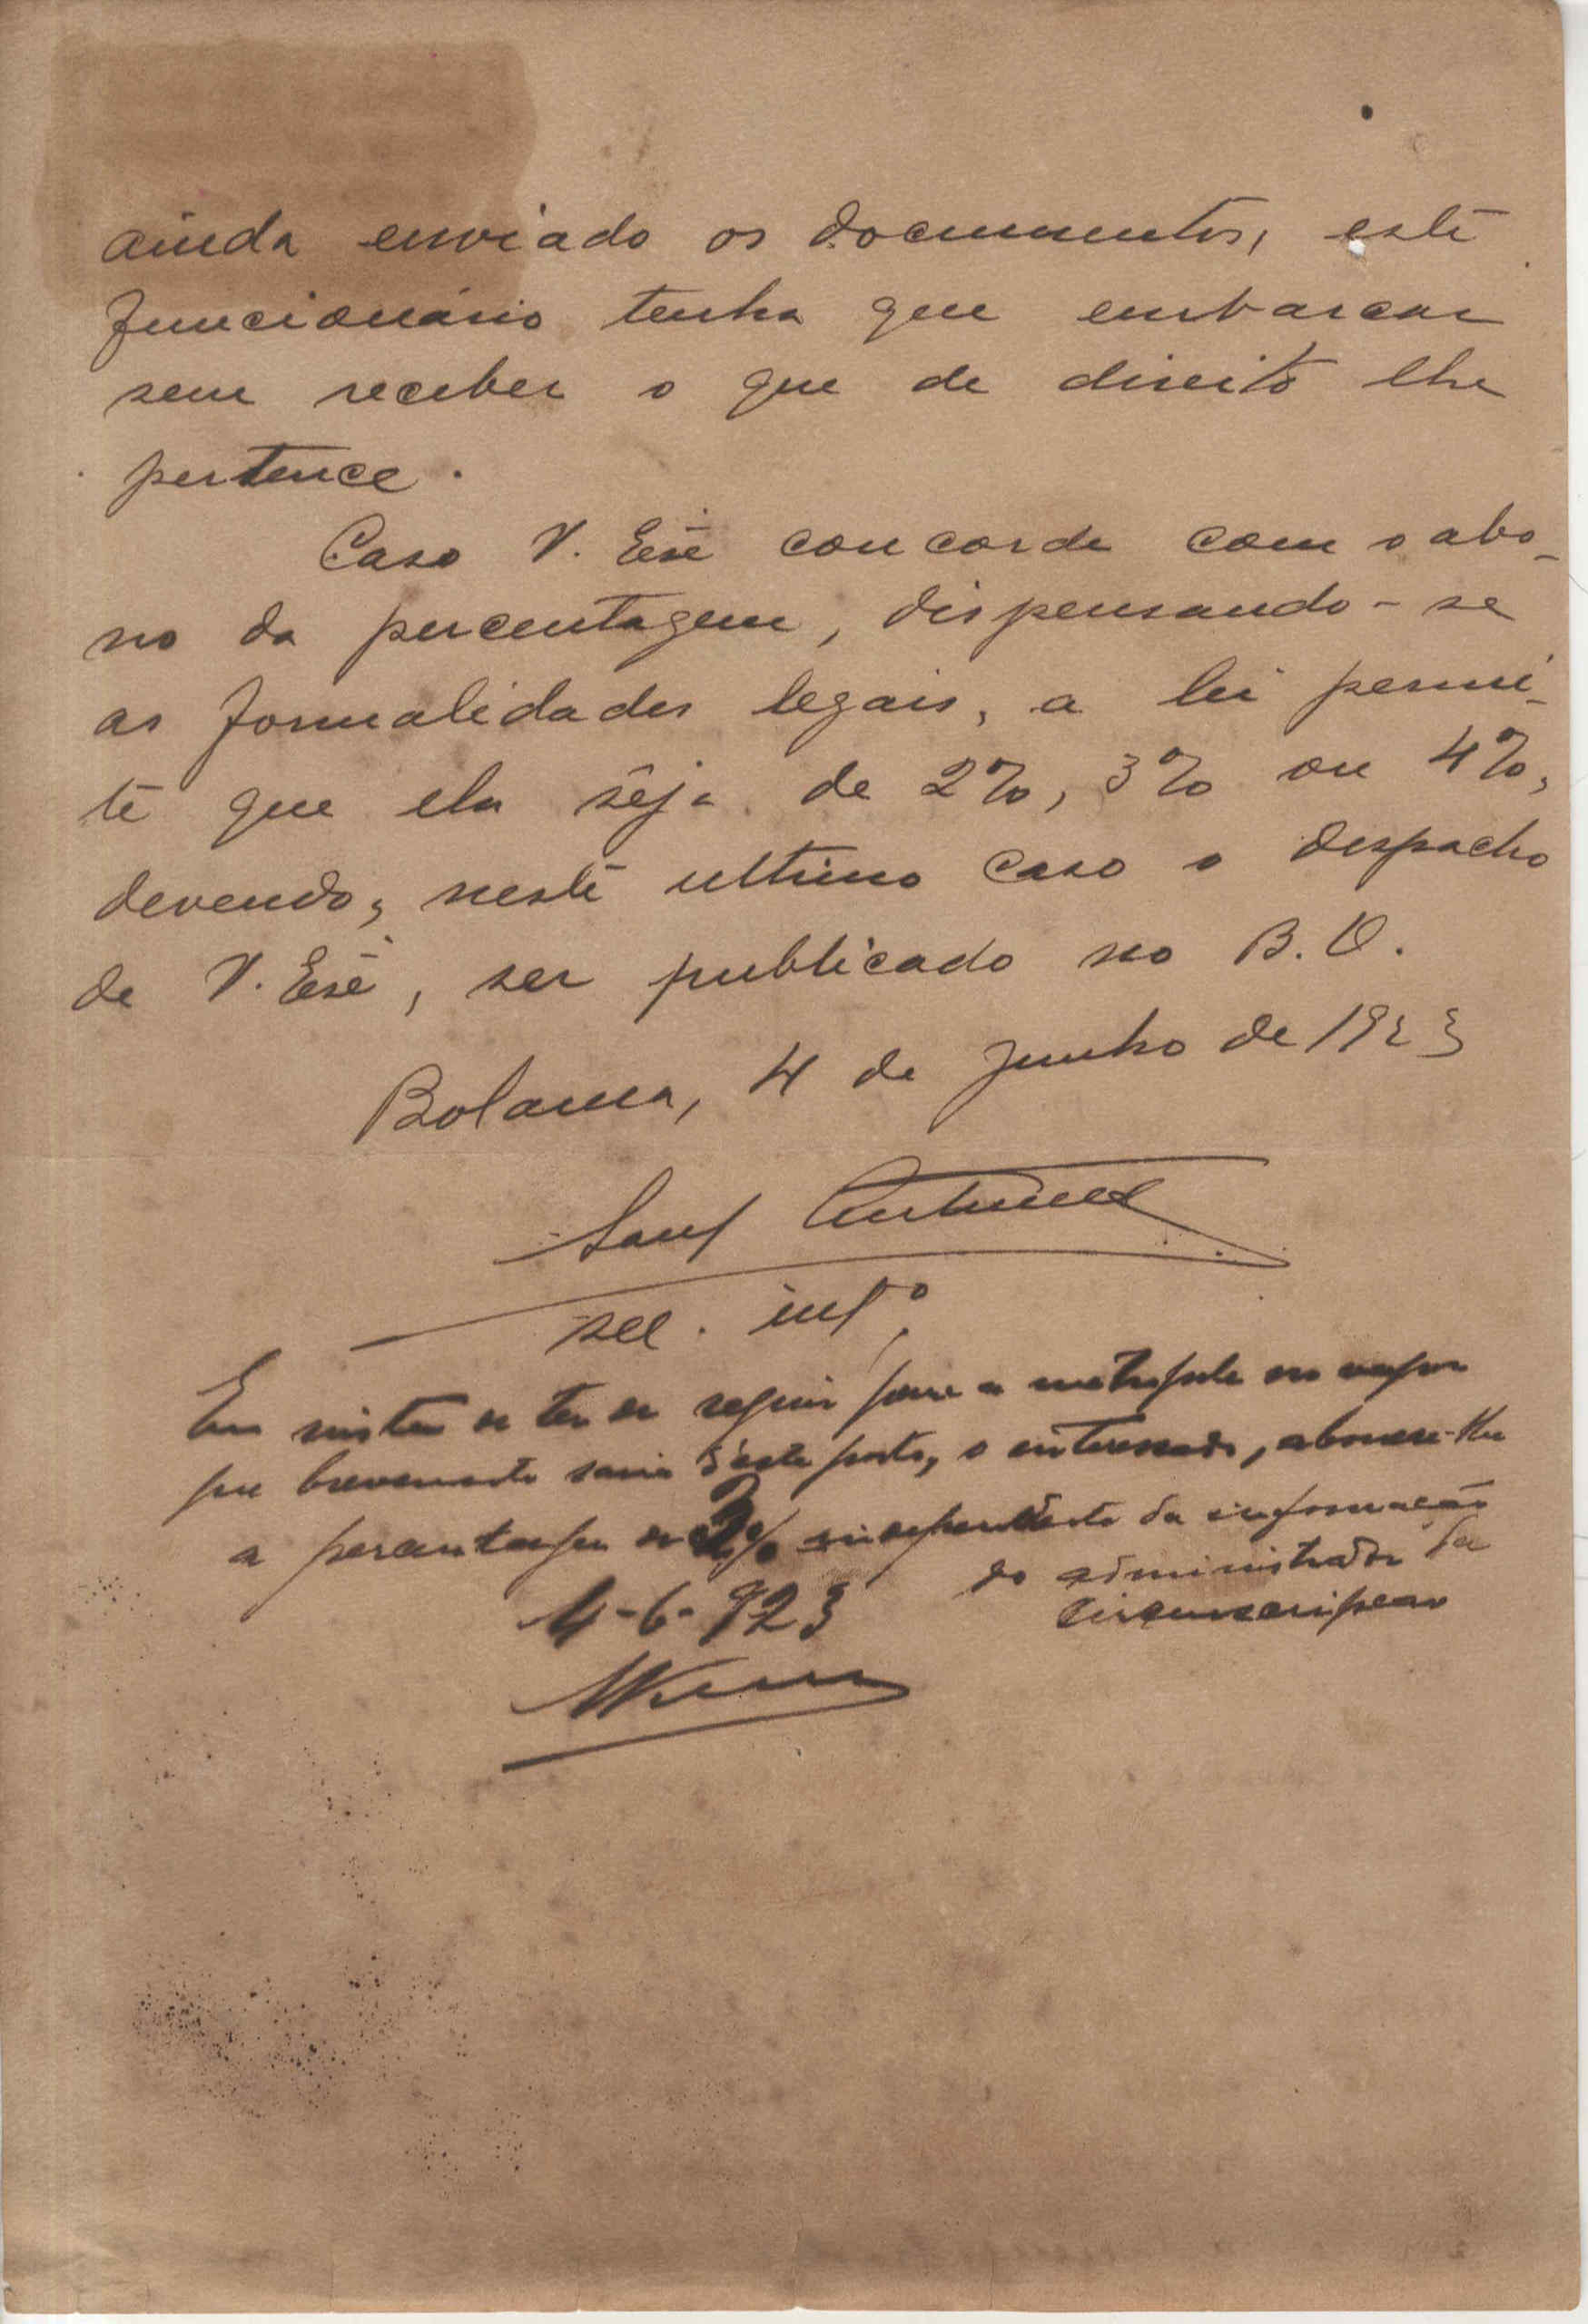 ainda enviado os documentos, este
funcionário tenha que embarcar
sem receber o que de direito lhe
pertence.
Caso V. Exª concorde com o abo-
no da percentagem, dispensando-se
as formalidades legais, a lei permi-
te que ela sêja de 2%, 3% ou 4%,
devendo, neste ultimo caso o despacho
de V. Exª, ser publicado no B. O.
Bolama, 4 de Junho de 1923
Antunes
sec. intº
Em vista de ter de seguir para a metropole no vapor
que brevemente saira d'este porto, o interessado, abone-se-lhe
a percentagem de 3% independente da informação
do administrador da
circunscripção
4-6-923